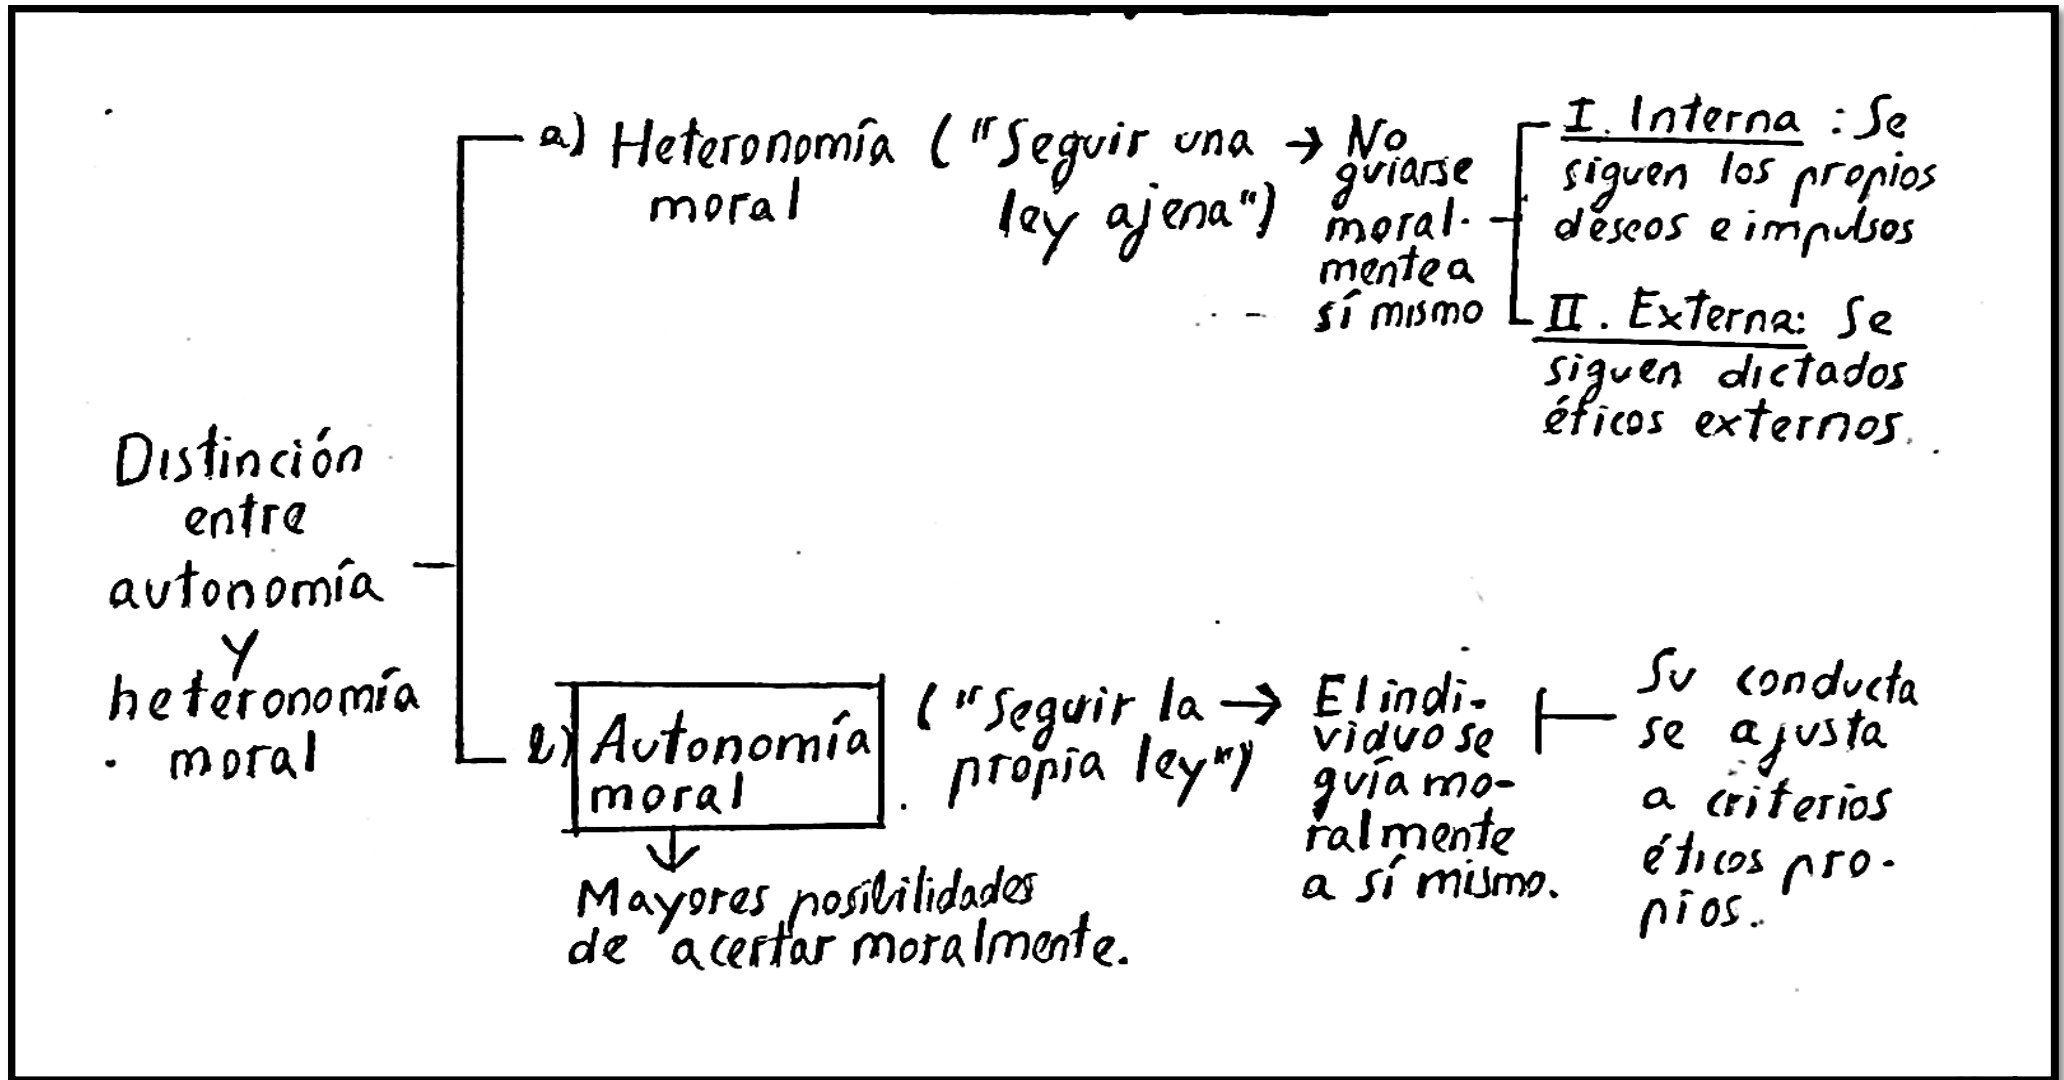 Distinción
entre
autonomía
y
heteronomía
moral
a) Heteronomía
moral
("Seguir una
ley ajena")
→ No
guiarse
moral-
mente a
sí mismo
I. Interna: Se
siguen los propios
deseos e impulsos
II. Externa: Se
siguen dictados
éticos externos.
b) Autonomía
moral
("Seguir la
propia ley")
→ El indi-
viduo se
guía mo-
ralmente
a sí mismo.
Su conducta
se ajusta
a criterios
éticos pro-
pios.
Mayores posibilidades
de acertar moralmente.